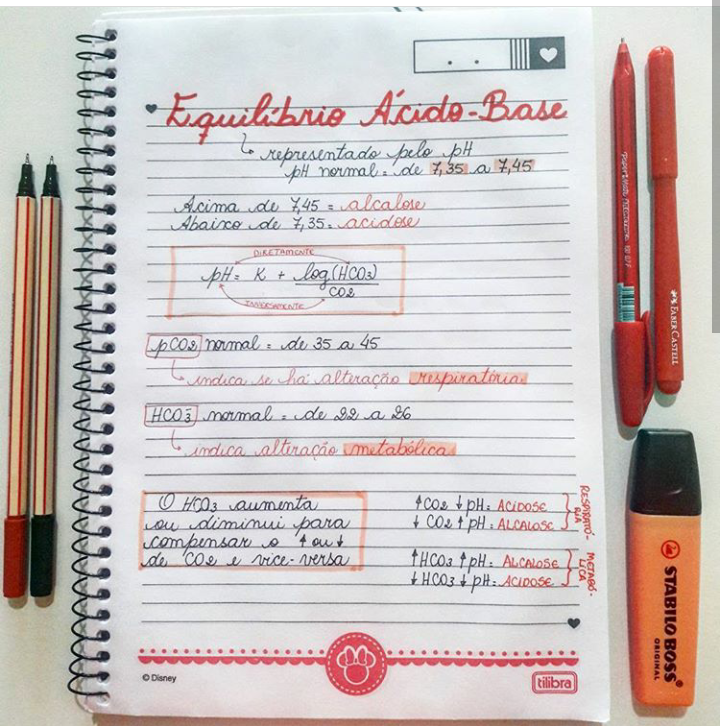 Equilíbrio Ácido-Base
representado pelo pH
pH normal = de 7,35 a 7,45
Acima de 7,45 = alcalose
Abaixo de 7,35 = acidose
DIRETAMENTE
pH = K + log (HCO3)
CO2
INVERSAMENTE
pCO2 normal = de 35 a 45
indica se há alteração respiratória.
HCO3⁻ normal = de 22 a 26
indica alteração metabólica.
O HCO3 aumenta
ou diminui para
compensar o ↑ ou ↓
de CO2 e vice-versa
↑CO2 ↓pH = ACIDOSE
↓CO2 ↑pH = ALCALOSE
RESPIRATÓ-
RIA
↑HCO3 ↑pH = ALCALOSE
↓HCO3 ↓pH = ACIDOSE
METABÓ-
LICA
© Disney
tilibra
FABER-CASTELL
STABILO BOSS
ORIGINAL